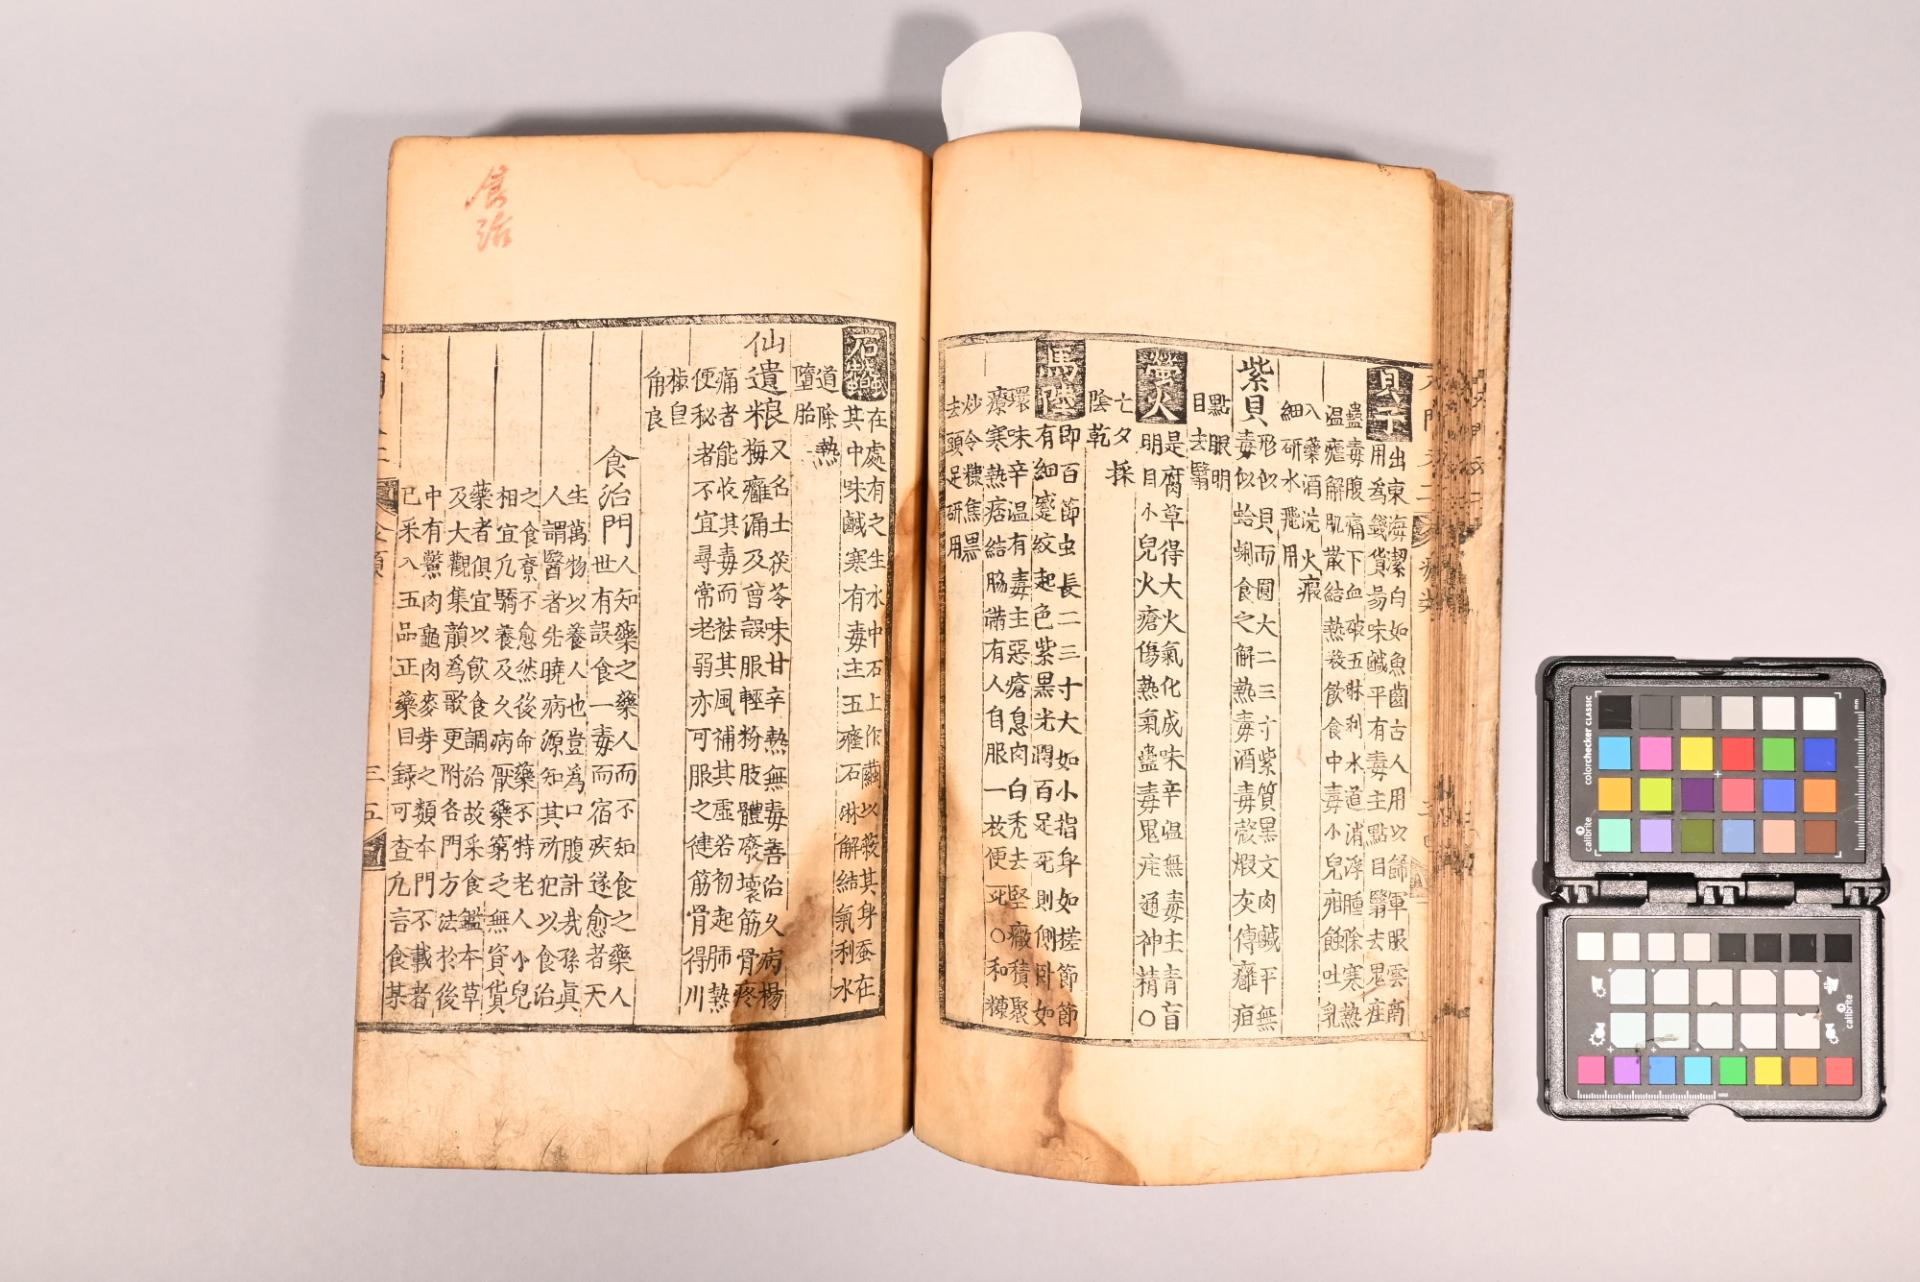 貝子
出東海潔白如魚齒古人用以飾軍服雲南
用爲錢貨易味鹹平有毒主點目翳去鬼疰
蠱毒腹痛下血破五淋利水道消浮腫除寒熱
温瘧解肌散結熱發飲食中毒小兒疳蝕吐乳
入藥酒洗火煆
細研水飛用
紫貝
形似貝而圓大二三寸紫質黑文肉鹹平無
毒似蛤蜊食之解熱毒酒毒殼煆灰傅癰疽
點眼明
目去翳
螢火
是腐草得大火氣化成味辛温無毒主青盲
明目小兒火瘡傷熱氣蠱毒鬼疰通神精○
七夕採
陰乾
馬陸
即百節虫長二三寸大如小指身如搓節節
有細蹙紋起色紫黑光潤百足死則側卧如
環味辛温有毒主惡瘡息肉白禿去堅癥積聚
療寒熱痞結脇滿有人自服一枚便死○和糠
炒令糠焦黑
去頭足研用
石蠶
在處有之生水中石上作繭以蔽其身蚕在
其中味鹹寒有毒主五癃石淋解結氣利水
道除熱
墮胎
仙遺粮
又名土茯苓味甘辛熱無毒善治久病楊
梅癰漏及曾誤服輕粉肢體廢壞筋骨疼
痛者能收其毒而祛其風補其虚若初起肺熱
便秘者不宜尋常老弱亦可服之健筋骨得川
椒自
角良
食治門
人知藥之藥人而不知食之藥人
世有誤食一毒而宿疾遂愈者天
生萬物以養人也豈爲口腹計哉孫眞
人謂醫者先曉病源知其所犯以食治
之食療不愈然後命藥不特老人小兒
相宜凡驕養及久病厭藥窮乏無資貨
藥者俱宜以飲食調治故采食鑑本草
及大觀集韻爲歌更附各門方法於後
中有鱉肉龜肉麥芽之類本門不載者
已采入五品正藥目録可查凡言食某
三五
食治